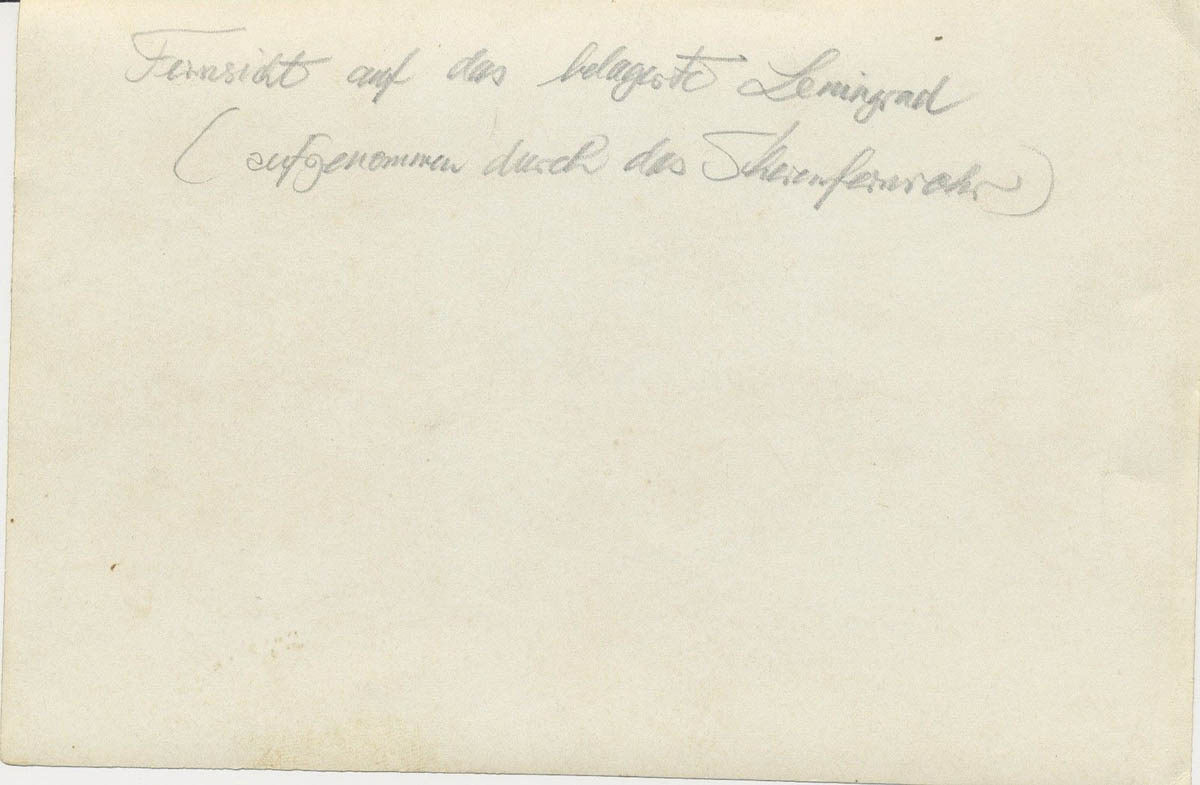 Fernsicht auf das belagerte Leningrad
(aufgenommen durch das Scherenfernrohr)